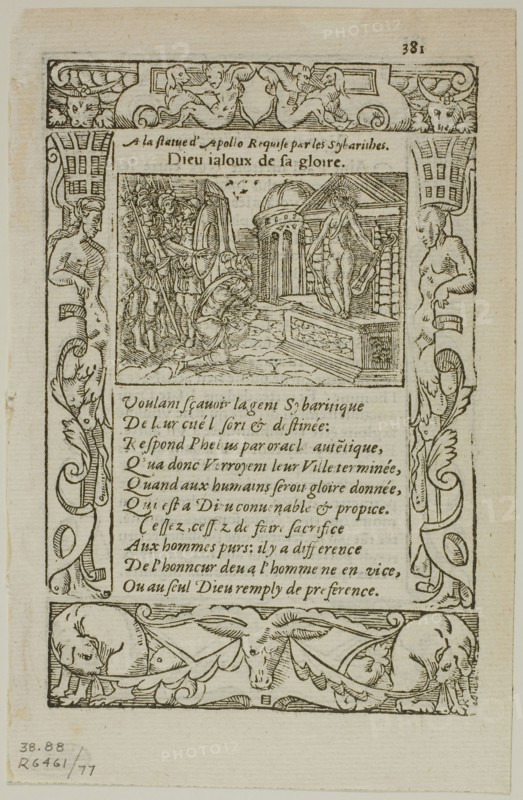 381
A la statue d'Apollo Requise par les Sybarithes.
Dieu ialoux de sa gloire.
Voulant sçauoir la gent Sybaritique
De leur cité l sort & destinée:
Respond Phebus par oracl autẽtique,
Qu'ua donc Verroyent leur Ville terminée,
Quand aux humains seroit gloire donnée,
Qui est a Dieu conuenable & propice.
Cessez, cessez de faire sacrifice
Aux hommes purs: il y a difference
De l'honneur deu a l'homme ne en vice,
Ou au seul Dieu remply de preference.
38.88
R6461/77
PHOTO12
PHOTO12